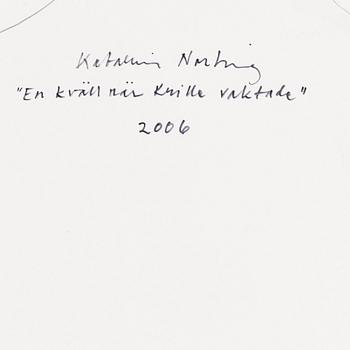 Katarina Norling
"En kväll när Krille vaktade"
2006